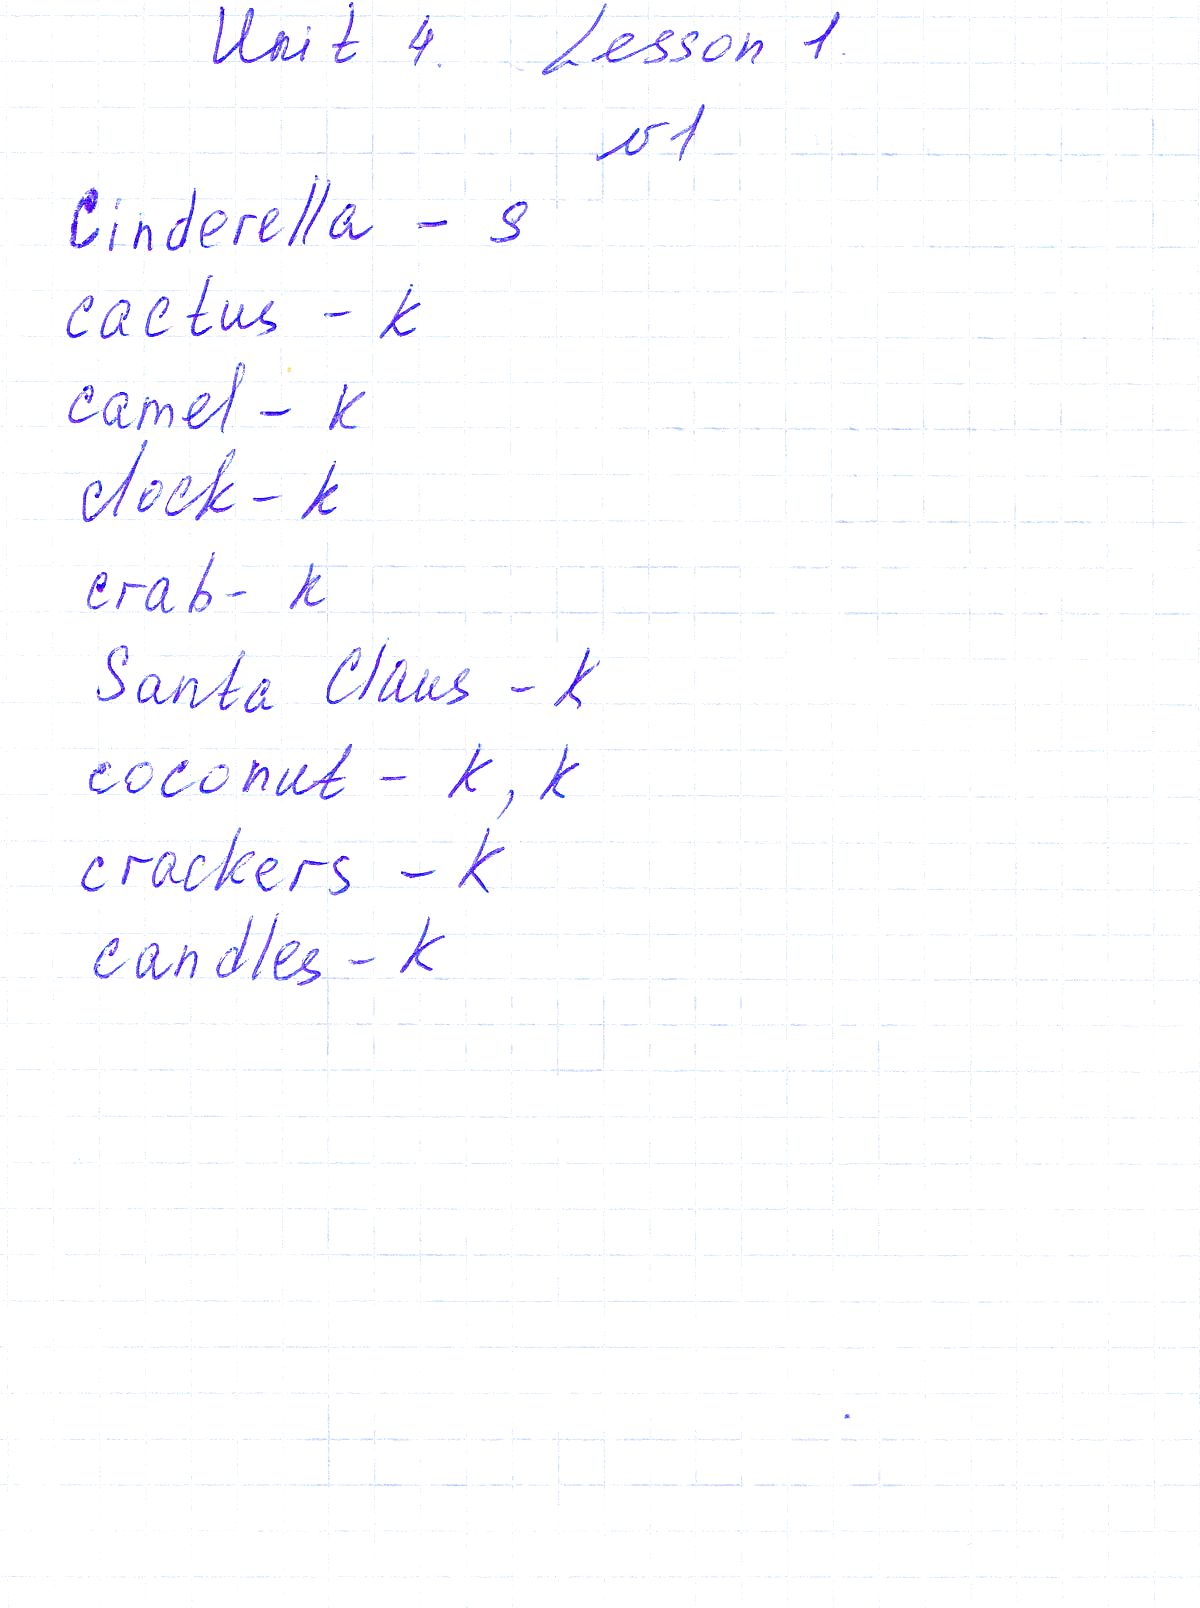 Unit 4. Lesson 1.
№1
Cinderella - s
cactus - k
camel - k
clock - k
crab - k
Santa Claus - k
coconut - k, k
crackers - k
candles - k